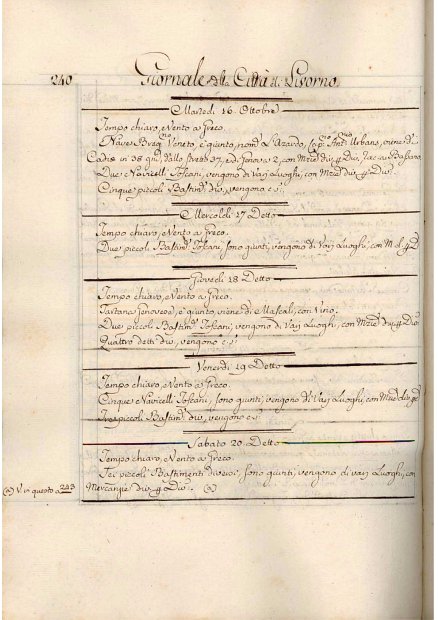 240
Giornale della Città di Livorno
Martedi 16 Ottobre
Tempo chiaro, e Vento a Greco.
Nave Veneto, è giunto, nomᵒ Lazardo, Capⁿᵒ Antᵒ Urbans, viene da
Cadice in 38 giniˡ dallo stretto 37, ed Genova 2, con Mercˡ div p Div.
Due Navicelli Toscani, vengono di Varj Luoghi, con Mercˡ div p Div.
Cinque piccoli Bastimˡ div, vengono e sˡ
Mercoledi 17 Detto
Tempo chiaro, e Vento a Greco.
Due piccoli Bastimˡ Toscani, sono giunti, vengono di Varj Luoghi, con M. d. p D
Giovedi 18 Detto
Tempo chiaro, e Vento a Greco.
Tartana genovese, è giunta, viene di Mascali, con Vino.
Due piccoli Bastimˡ Toscani, vengono di Varj Luoghi, con Mercˡ div p Div
Quattro detti div, vengono e sˡ
Venerdi 19 Detto
Tempo chiaro, e Vento a Greco.
Cinque Navicelli Toscani, sono giunti, vengono di Varj Luoghi, con Mercˡ
Tre piccoli Bastimˡ div, vengono e sˡ
Sabato 20 Detto
Tempo chiaro, e Vento a Greco.
Sei piccoli Bastimenti diversi, sono giunti, vengono di varj Luoghi, con
Mercanzie div p Div. (a)
(a) V in questo a 243